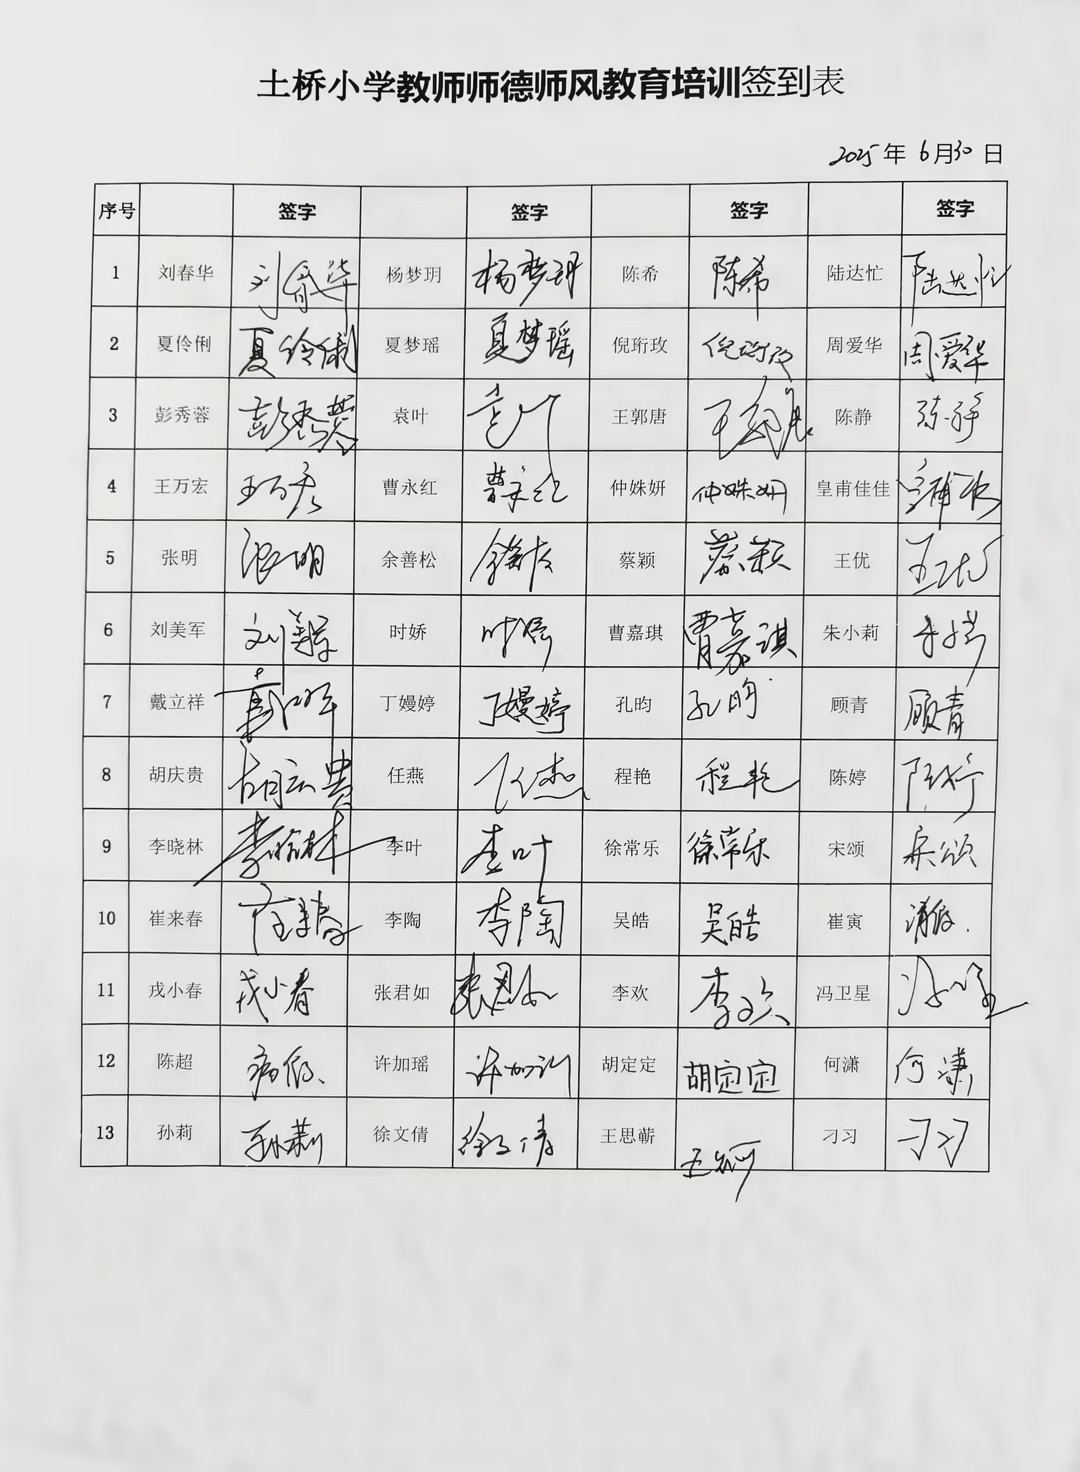 土桥小学教师师德师风教育培训签到表
2025年 6月30日
序号 签字 签字 签字 签字
1 刘春华 刘春华 杨梦玥 杨梦玥 陈希 陈希 陆达忙 陆达忙
2 夏伶俐 夏伶俐 夏梦瑶 夏梦瑶 倪珩玫 倪珩玫 周爱华 周爱华
3 彭秀蓉 彭秀蓉 袁叶 袁叶 王郭唐 王郭唐 陈静 陈静
4 王万宏 王万宏 曹永红 曹永红 仲姝妍 仲姝妍 皇甫佳佳
5 张明 张明 余善松 余善松 蔡颖 蔡颖 王优 王优
6 刘美军 刘美军 时娇 时娇 曹嘉琪 曹嘉琪 朱小莉 朱小莉
7 戴立祥 戴立祥 丁嫚婷 丁嫚婷 孔昀 孔昀 顾青 顾青
8 胡庆贵 胡庆贵 任燕 任燕 程艳 程艳 陈婷 陈婷
9 李晓林 李晓林 李叶 李叶 徐常乐 徐常乐 宋颂 宋颂
10 崔来春 崔来春 李陶 李陶 吴皓 吴皓 崔寅
11 戎小春 戎小春 张君如 张君如 李欢 李欢 冯卫星 冯卫星
12 陈超 病假、 许加瑶 胡定定 胡定定 何潇 何潇
13 孙莉 孙莉 徐文倩 徐文倩 王思蕲 刁习 刁习